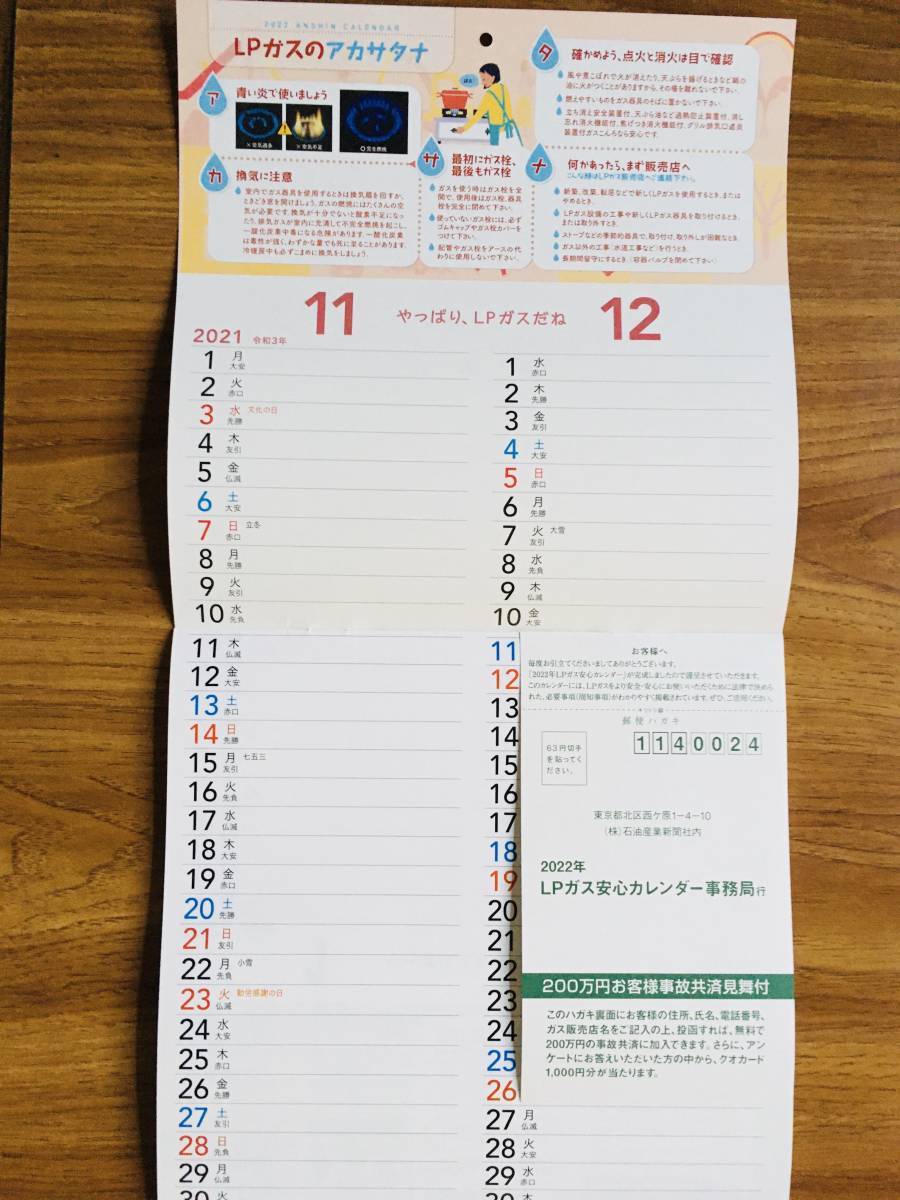 2022 ANSHIN CALENDAR
LPガスのアカサタナ
ア
青い炎で使いましょう
×空気過多
×空気不足
○完全燃焼
カ
換気に注意
室内でガス器具を使用するときは換気扇を回すか、
ときどき窓を開けましょう。ガスの燃焼にはたくさんの空
気が必要です。換気が十分でないと酸素不足になっ
たり、排気ガスが室内に充満して不完全燃焼を起こし、
一酸化炭素中毒になる危険があります。一酸化炭素
は毒性が強く、わずかな量でも死に至ることがあります。
冷暖房中も必ずこまめに換気をしましょう。
サ
最初にガス栓、
最後もガス栓
ガスを使う時はガス栓を全
開で、使用後はガス栓、器具
栓を完全に閉めて下さい。
使っていないガス栓には、必ず
ゴムキャップやガス栓カバーを
つけて下さい。
配管やガス栓をアースの代
わりに使用しないで下さい。
タ
確かめよう、点火と消火は目で確認
風や煮こぼれで火が消えたり、天ぷらを揚げるときなど鍋の
油に火がつくことがありますから、その場を離れないで下さい。
燃えやすいものをガス器具のそばに置かないで下さい。
立ち消え安全装置付、天ぷら油など過熱防止装置付、消し
忘れ消火機能付、焦げつき消火機能付、グリル排気口遮炎
装置付ガスこんろなら安心です。
ナ
何かあったら、まず販売店へ
こんな時はLPガス販売店へご連絡下さい。
新築、改築、転居などで新しくLPガスを使用するとき、または
やめるとき。
LPガス設備の工事や新しくLPガス器具を取り付けるとき、
または取り外すとき。
ストーブなどの季節的器具で、取り付け、取り外しが困難なとき。
ガス以外の工事(水道工事など)を行うとき。
長期間留守にするとき。(容器バルブを閉めて下さい)
11
やっぱり、LPガスだね
12
2021 令和3年
1 月 大安
2 火 赤口
3 水 文化の日 先勝
4 木 友引
5 金 仏滅
6 土 大安
7 日 立冬 赤口
8 月 先勝
9 火 友引
10 水 先負
11 木 仏滅
12 金 大安
13 土 赤口
14 日 先勝
15 月 七五三 友引
16 火 先負
17 水 仏滅
18 木 大安
19 金 赤口
20 土 先勝
21 日 友引
22 月 小雪 先負
23 火 勤労感謝の日 仏滅
24 水 大安
25 木 赤口
26 金 先勝
27 土 友引
28 日 先負
29 月 仏滅
30 火
1 水 赤口
2 木 先勝
3 金 友引
4 土 大安
5 日 赤口
6 月 先勝
7 火 大雪 友引
8 水 先負
9 木 仏滅
10 金 大安
11
12
13
14
15
16
17
18
19
20
21
22
23
24
25
26
27 月 仏滅
28 火 大安
29 水 赤口
30 木
お客様へ
毎度お引立てくださいましてありがとうございます。
「2022年LPガス安心カレンダー」が完成しましたので謹呈させていただきます。
このカレンダーには、LPガスをより安全・安心にお使いいただくために法律で決めら
れた、必要事項(周知事項)がわかりやすく掲載されています。ぜひ、ご活用ください。
郵便ハガキ
1140024
63円切手
を貼ってく
ださい。
東京都北区西ケ原1-4-10
(株)石油産業新聞社内
2022年
LPガス安心カレンダー事務局行
200万円お客様事故共済見舞付
このハガキ裏面にお客様の住所、氏名、電話番号、
ガス販売店名をご記入の上、投函すれば、無料で
200万円の事故共済に加入できます。さらに、アン
ケートにお答えいただいた方の中から、クオカード
1,000円分が当たります。